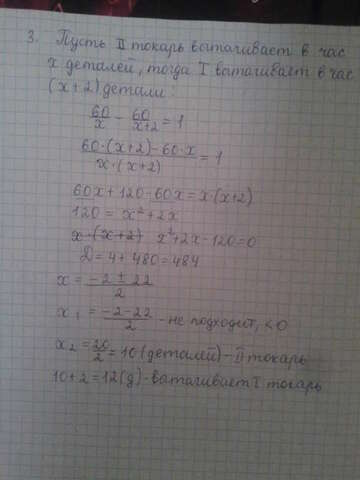 3. Пусть II токарь вытагивает в час
x деталей, тогда I вытагивает в час
(x+2) детали:
60/x - 60/x+2 = 1
60·(x+2)-60·x / x·(x+2) = 1
60x+120-60x=x·(x+2)
120 = x²+2x
x·(x+2) x²+2x-120=0
D=4+480=484
x = -2±22 / 2
x₁ = -2-22 / 2 - не подходит, <0
x₂ = 20/2 = 10 (деталей) - II токарь
10+2=12(д)-ватагивает I токарь